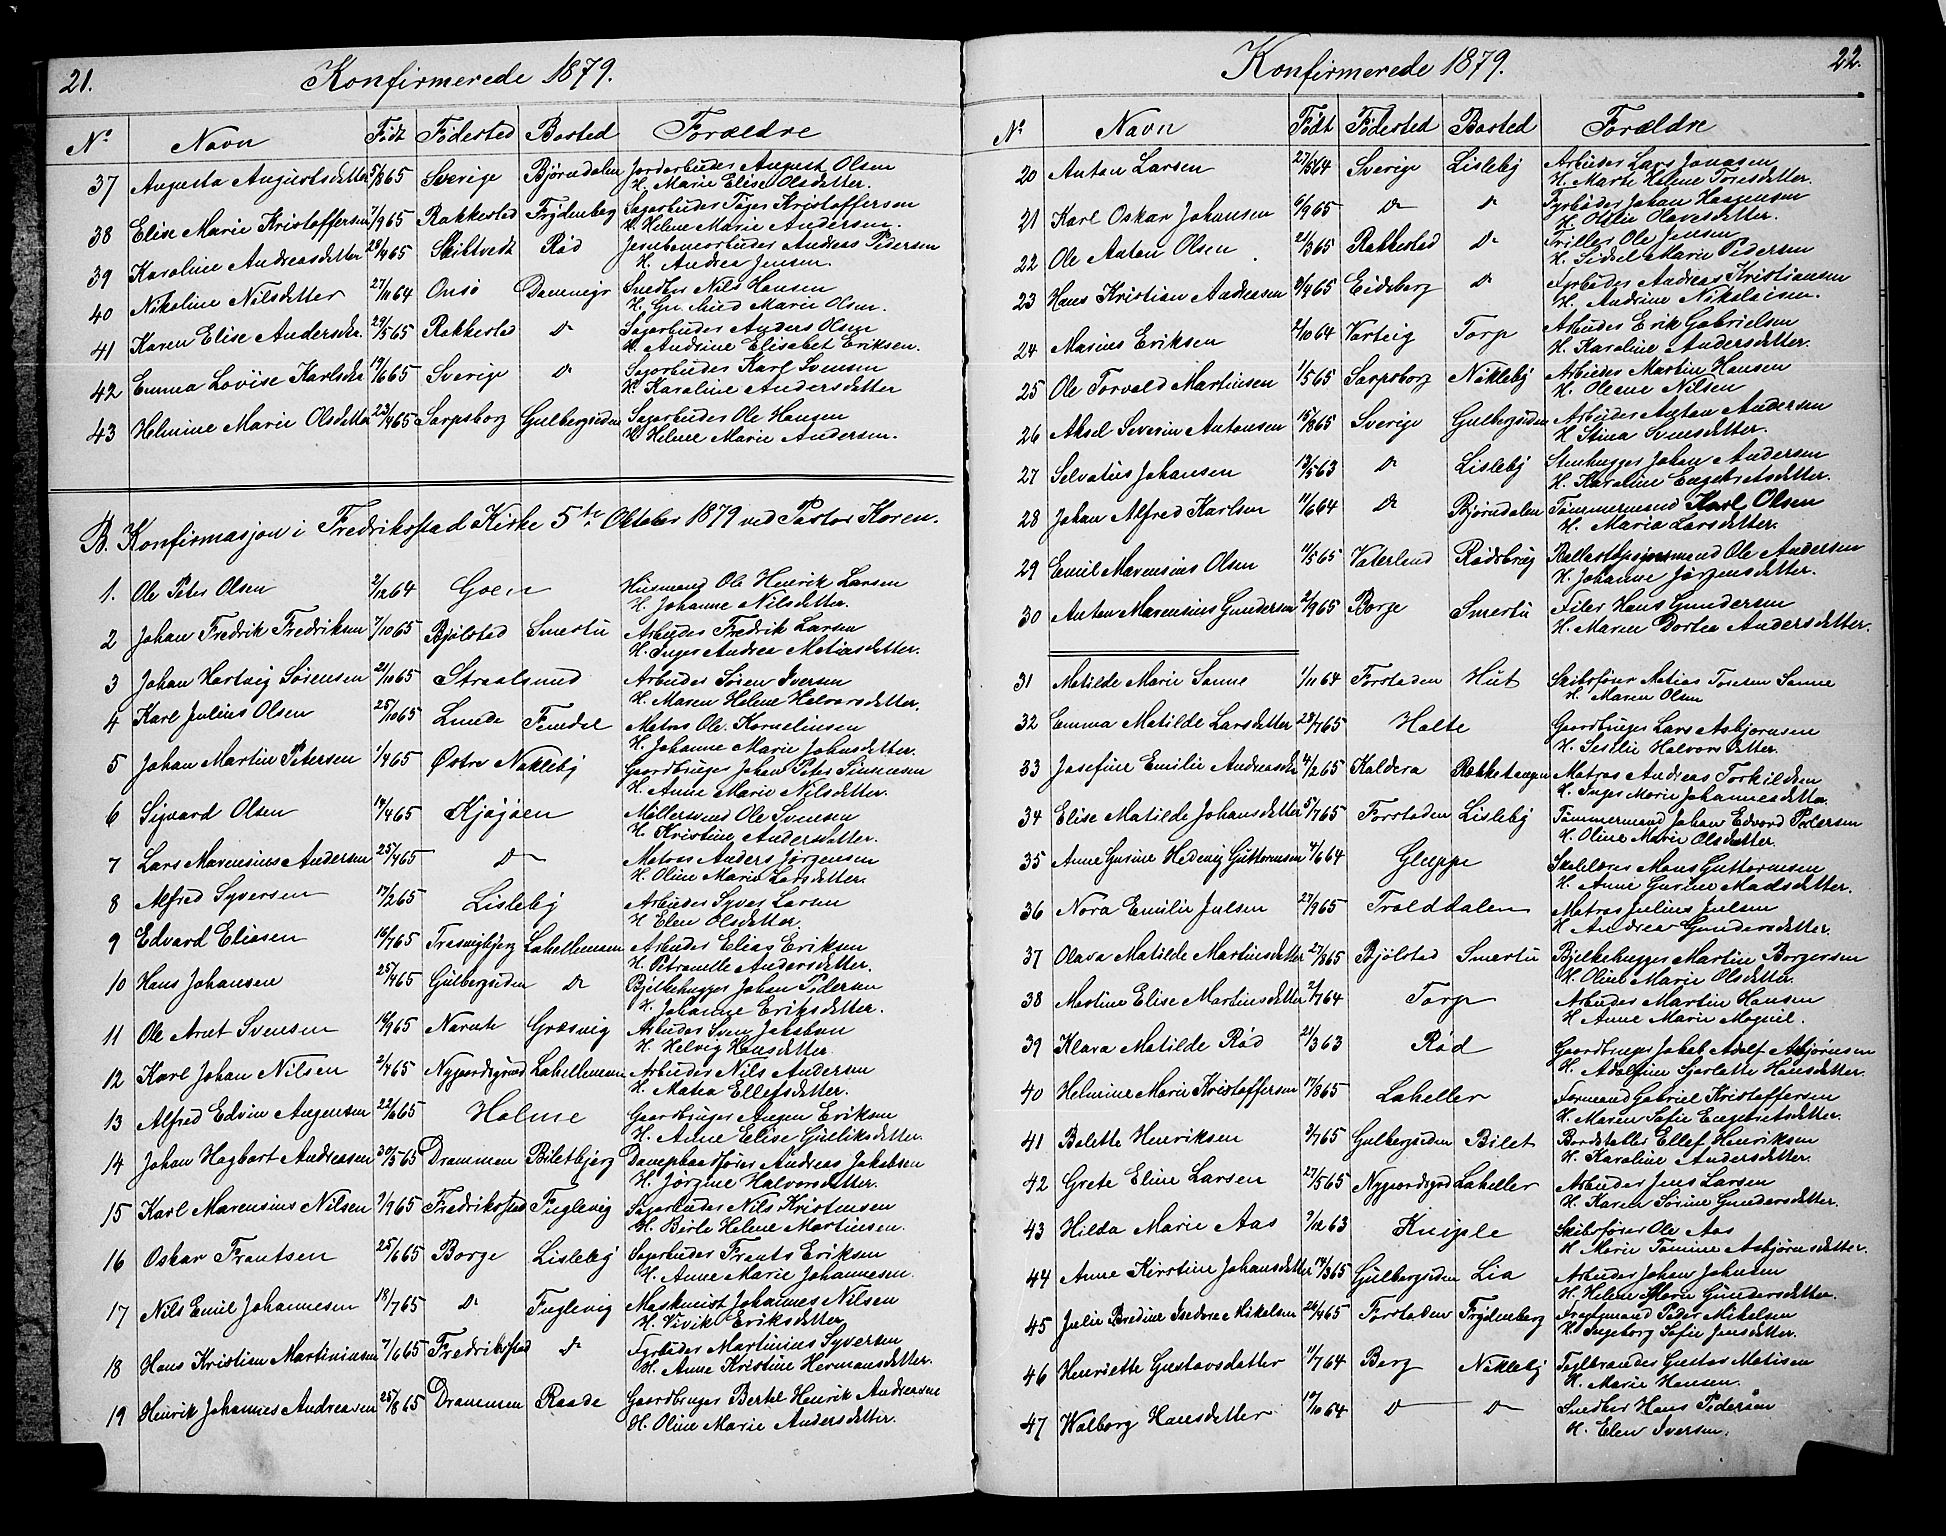 21.
Konfirmerede 1879.
No Navn Födt Födested Bosted Forældre
37 Augusta Augustsdetter 5/865 Sverige Björndalen Jordarbuder August Olsen
H. Marie Elise Olsdetter.
38 Elise Marie Kristoffersen 7/965 Rakkestad Frydenberg Sagarbuder Kristoffersen
H. Helene Marie Andersen.
39 Karoline Andreasdetter Skiltvedt Rød Jernbanearbuder Andreas Pedersen
H. Andrea Jensen.
40 Nikoline Nilsdetter 27/1164 Onsö Smedbr Nils Hansen
H. Marie Olsen.
41 Karen Elise Andersdtr. 29/565 Rakkestad Do Sagarbuder Anders Olsen
H. Andrine Elisabet Eriksen.
42 Emma Lovise Karlsdtr 19/665 Sverige Do Sagarbuder Karl Svensen
H. Karoline Andersdetter
43 Helmine Marie Olsdetter 23/965 Sarpsborg Gulbergsiden Sagarbuder Ole Hansen
H. Helene Marie Andersen.
B. Konfirmasjon i Fredrikstad Kirke 5te Oktober 1879 ved Pastor Koren.
1. Ole Peter Olsen 2/1264 Goen Husmand Ole Henrik Larsen
H. Johanne Nilsdetter.
2 Johan Fredrik Fredriksen 7/1065 Bjölstad Smertu Arbuder Fredrik Larsen
H. Inger Andrea Matiasdetter.
3 Johan Hartvig Sörensen 21/1065 Straalsund Arbuder Sören Iversen
H. Maren Helene Halvorsdetter.
4 Karl Julius Olsen 25/1065 Lunde Matros Ole Kornelinsen
H. Johanne Marie Johnsdetter.
5 Johan Martin Petersen 1/465 Østre Nøkleby Gaardbruger Johan Peter Simensen
H. Anne Marie Nilsdetter.
6 Sigvard Olsen 19/465 Kjøjöen Möllersvend Ole Svensen
H. Kristine Andersdetter.
7 Lars Marensius Andersen 25/465 Do Matros Anders Jörgensen
H. Oline Marie Larsdetter.
8 Alfred Syversen 17/265 Lisleby Arbuder Syver Larsen
H. Elen Olsdetter.
9 Edvard Eliasen 16/765 Lahellemoen Arbuder Elias Eriksen
H. Petronelle Andersdetter.
10 Hans Johansen 25/465 Gulbergsiden Do Bjelkehugger Johan Pedersen
H. Johanne Eriksdetter.
11 Ole Arnt Svensen 16/965 Narnte Græsvig Arbuder Sven Jakobsen
H. Helvig Hansdetter
12 Karl Johan Nilsen 2/465 Nygaardsgrund Lahellemoen Arbuder Nils Andersen
H. Matea Ellefsdetter.
13 Alfred Edvin Augensen 22/665 Holme Gaardbruger Augen Eriksen
H. Anne Elise Gulliksdetter.
14 Johan Hagbart Andreasen 30/565 Drammen Biletbjerg Dampbaadförer Andreas Jakobsen
H. Jörgine Halvorsdetter.
15 Karl Marensius Nilsen 7/965 Fredrikstad Fuglevig Sagarbuder Nils Kristensen
H. Birte Helene Martinsen.
16 Oskar Frantsen 25/665 Borge Lisleby Sagarbuder Frants Eriksen
H. Anne Marie Johannesen.
17 Nils Emil Johannesen 18/765 Do Fuglevig Maskinist Johannes Nilsen
H. Vivik Eriksdetter
18 Hans Kristian Martiniusen 7/665 Fredrikstad Do Fyrbuder Martinius Syversen
H. Anne Kristine Hermansdetter.
19 Henrik Johannes Andreasen 25/865 Drammen Raade Gaardbruger Bertel Henrik Andreasen
H. Oline Marie Andersdetter.
Konfirmerede 1879. 22.
No Navn Födt Födested Bosted Forældre
20 Anton Larsen Sverige Lisleby Arbuder Lars Jonasen
H. Marte Helene Toresdetter.
21 Karl Oskar Johansen 6/965 Do Do Fyrböder Johan Haagensen
H. Otilie Olavesdetter.
22 Ole Anton Olsen 21/365 Rakkestad Do Triller Ole Jensen
H. Sidsel Marie Pedersen
23 Hans Kristian Andreasen 9/465 Eidsberg Do Fyrböder Andreas Kristiansen
H. Andrine Nikolaisen.
24 Marius Eriksen 2/1064 Varteig Torp Arbuder Erik Gabrielsen
H. Karoline Andersdetter.
25 Ole Torvald Martinsen 1/565 Sarpsborg Nökleby Arbuder Martin Hansen
H. Olene Nilsen
26 Aksel Severin Antonsen 15/865 Sverige Gulbergsiden Arbuder Anton Andersen
H. Stina Svensdetter.
27 Selvatius Johansen 19/563 Do Lisleby Stenhugger Johan Andersen
H. Karoline Engebretsdetter.
28 Johan Alfred Karlsen 11/664 Do Björndalen Tömmermand Karl Olsen
H. Maria Larsdetter.
29 Emil Marensius Olsen 11/565 Vaterland Rödsbrug Ole Andersen
H. Johanne Jörgensdetter.
30 Anton Marensius Gundersen 2/965 Borge Smertu Filer Hans Gundersen
H. Maren Dortea Andersdetter.
31 Matilde Marie Sanne 1/1164 Forstaden Hut Skibsförer Matias Toresen Sanne
H. Maren Olsen
32 Emma Matilde Larsdetter 28/765 Holte Gaardbruger Lars Asbjörnsen
H. Sesilie Halvorsdetter.
33 Josefine Emilie Andreasdtr 4/265 Kaldera Rækketangen Matros Andreas Torkildsen
H. Inger Marie Johannesdetter
34 Elise Matilde Johansdetter 5/765 Forstaden Lisleby Tömmermand Johan Edvard Pedersen
H. Oline Marie Olsdetter.
35 Anne Gurine Hedevig Guttormsen 4/664 Glæppe Skolelærer Mons Guttormsen
H. Anne Gurine Madsdetter.
36 Nora Emilie Julsen 27/965 Trolddalen Matros Julius Julsen
H. Andrea Gundersdetter.
37 Olava Matilde Martinsdetter 27/865 Bjölstad Smertu Bjelkehugger Martin Borgersen
H. Oline Marie Olsdetter.
38 Martine Elise Martinsdetter 2/764 Torp Arbuder Martin Hansen
H Anne Marie Moguil.
39 Klara Matilde Rød 21/363 Rød Gaardbruger Jakob Adolf Asbjörnsen
H. Adolfine Sjarlotte Hansdetter.
40 Helmine Marie Kristoffersen 17/865 Laheller Formand Gabriel Kristoffersen
H. Maren Sofie Engebretsdetter.
41 Bolette Henriksen 3/765 Gulbergsiden Bilet Bordstabler Ellef Henriksen
H. Karoline Andersdetter.
42 Grete Eline Larsen 27/565 Nygaardsgrd Laheller Arbuder Jens Larsen
H. Karen Sörine Gundersdetter.
43 Hilda Marie Aas 7/1263 Kniple Skibsförer Ole Aas
H Marie Tomine Asbjörnsdetter.
44 Anne Kirstine Johansdetter 19/365 Gulbergsiden Lia Arbuder Johan Johnsen
H. Helene Marie Gundersdetter.
45 Julie Bredine Isedora Mikelsen 26/465 Forstaden Frydenberg Peder Mikelsen
H. Ingeborg Sofie Jensdetter.
46 Henriette Gustavsdatter 11/764 Berg Nökleby Teglbrænder Gustav Matisen
H. Marie Hansen.
47 Walborg Hansdetter 10/1064 Do Do Smedbr Hans Pedersen
H. Elen Iversen.